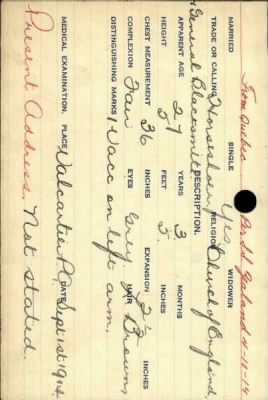 From Quebec Per S.S. Zealand 4-10-14
MARRIED SINGLE Yes WIDOWER
TRADE OR CALLING Horseshoer, RELIGION Church of England,
General Blacksmith DESCRIPTION.
APPARENT AGE 27 YEARS 3 MONTHS
HEIGHT 5 FEET 5 INCHES
CHEST MEASUREMENT 36 INCHES EXPANSION 2½ INCHES
COMPLEXION Fair EYES Grey HAIR Brown,
DISTINGUISHING MARKS 1 Vacc on left arm,
MEDICAL EXAMINATION. PLACE Valcartier P.Q. DATE Sept 1st 1914.
Present Address, Not stated.